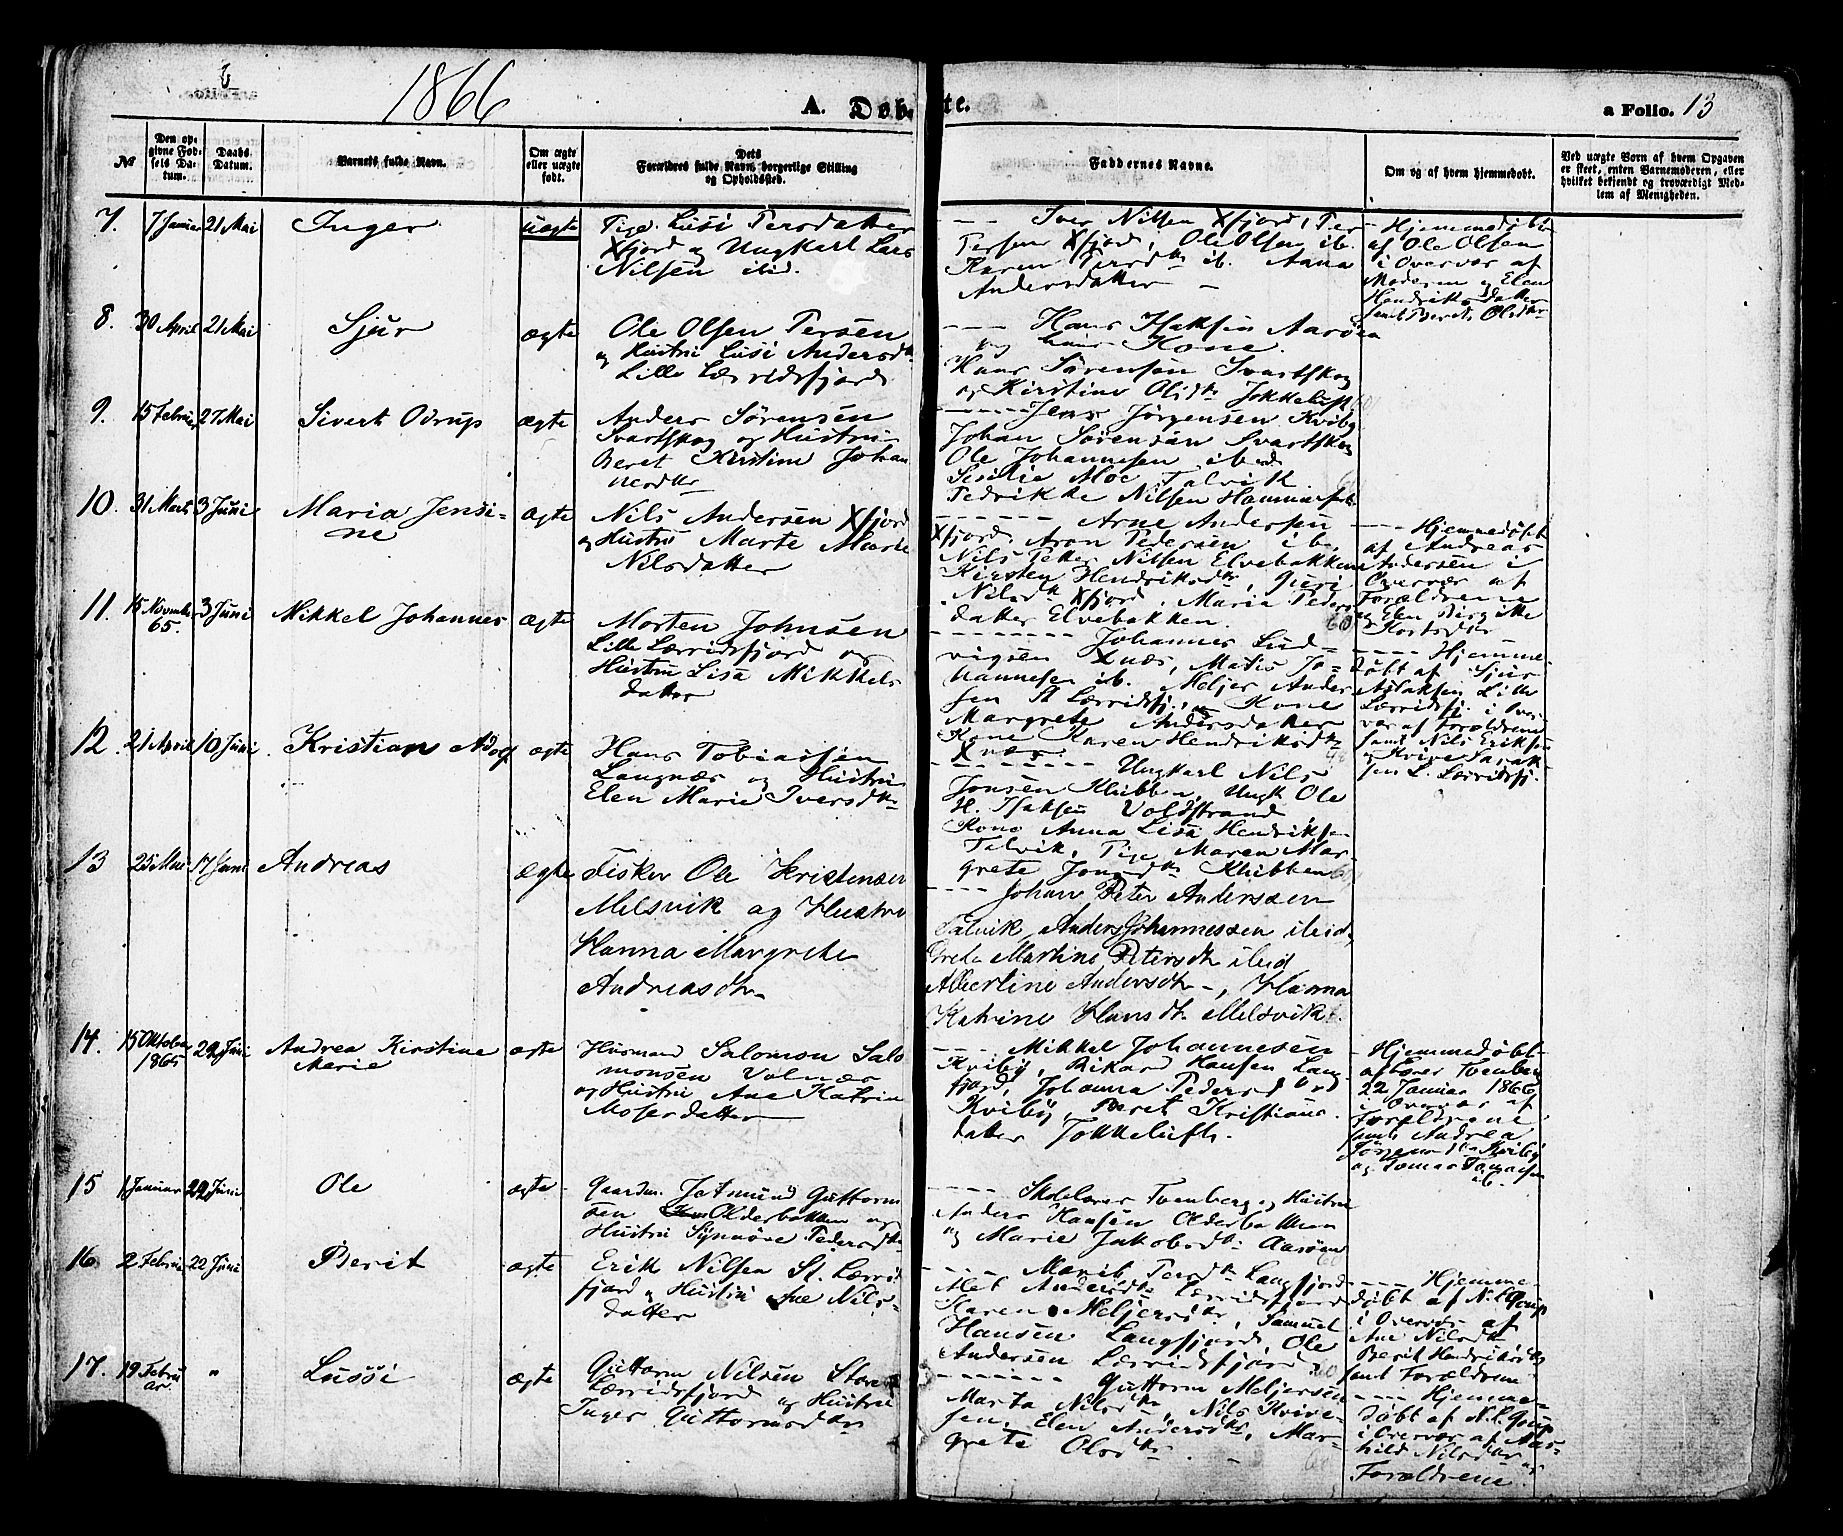 1866
A. Døb
te.
a Folio. 13
№
Den op-
givne Fød-
sels Da-
tum.
Daabs
Datum.
Barnets fulde Navn.
Om ægte
eller uægte
født.
Dets
Forældres fulde Navn, borgerlige Stilling
og Opholdssted.
Faddernes Navne.
Om og af hvem hjemmedøbt.
Ved uægte Børn af hvem Opgaven
er skeet, enten Barnemoderen, eller
hvilket bekjendt og troværdigt Med-
lem af Menigheden.
7. 7 Januar 21 Mai Inger uægte
Pige Lusi Persdatter
Xfjord og Ungkarl Lars
Nilsen ibid.
Iver Nilsen Xfjord, Per
Persen Xfjord, Ole Olsen ib.
Karen Persdtr ib. Anna
Andersdatter
Hjemmedøbt
af Ole Olsen
i Overvær af
Moderen og Elen
Hendriksdatter
samt Berit Olsdtr
8. 30 April 21 Mai Sjur ægte
Ole Olsen Persen
og Hustru Lusi Andersdtr
Lille Lærridsfjord
Hans Isaksen Aarøen
og hans Kone.
Hans Sørensen Svartskog
og Kirstine Olsdtr Jokkeluft
9. 15 Februar 27 Mai Sivert Odrup ægte
Anders Sørensen
Svartskog og Hustru
Beret Kirstine Johan
nesdtr
Jens Jørgensen Kviby
Johan Sørensen Svartskog
Ole Johannesen ibid.
Sisilie Moe Talvik
Fedrikke Nilsen Hammerfest
10. 31 Marts 3 Juni Maria Jensi-
ne ægte
Nils Andersen Xfjord
og Hustru Marte Marie
Nilsdatter
Arne Andersen
Xfjord, Aron Pedersen ib.
Nils Peter Nilsen Elvebakken
Kirsten Hendriksdtr, Guri
Nilsdtr Xfjord, Maria Peders
datter Elvebakken.
Hjemmedøbt
af Andreas
Andersen i
Overvær af
Forældrene
og Elen Birgitte
11. 15 November
65. 3 Juni Mikkel Johannes ægte
Morten Johnsen
Lille Lærridsfjord og
Hustru Lisa Mikkels
datter
Johannes Lud-
vigsen Xnæs, Matis Jo-
hannesen ib. Meljer Ander
sen St Lærridsfj. og Kone
Margrete Andersdatter
Kone Karen Hendriksdtr
Xnæs.
Hjemme-
døbt af Sjur
Aslaksen Lille
Lærridsfj. i Over
vær af Forældrene
samt Nils Eriksen
og Kvive Isak
sen L. Lærridsfj.
12 21 April 10 Juni Kristian Adolf ægte
Hans Tobiassen
Langnæs og Hustru
Elen Marie Iversdtr
Ungkarl Nils
Jonsen Klubben, Ungk Ole
H. Isaksen Voldstrand
Kone Anna Lisa Hendriksen
Talvik, Pige Maren Mar
grete Jonsdtr Klubben
13 25 Mai 17 Juni Andreas ægte
Fisker Ole Kristensen
Melsvik og Hustru
Hanna Margrete
Andreasdtr
Johan Peter Anderssen
Talvik, Anders Johannessen ibid,
Grete Martine Petersdtr ibid
Albertine Andersdtr -, Hanna
Katrine Hansdtr Melsvik.
14. 15 Oktober
1865 22 Juni Andrea Kirstine
Marie ægte
Husmand Salomon Salo
monsen Volnæs
og Hustru Ane Katrine
Mosesdatter
Mikkel Johannesen
Kviby, Rikard Hansen Lang
fjord, Johanna Pedersdtr
Kviby, Beret Kristians
datter Jokkeluft.
Hjemmedøbt
af Lærer Tvenberg
22 Januar 1866
i Overvær af
Forældrene
samt Andrea
Jørgensen Kviby
15 1 Januar 22 Juni Ole ægte
Gaardm. Jetmund Guttorm
sen Olderbakken og
Hustru Synnöve Pedersdtr
Skolelærer Tvenberg og Hustru
Anders Hansen Olderbakken
og Marie Jakobsdtr Aarøen
16 2 Februar 22 Juni Berit ægte
Erik Nilsen St. Lærrids
fjord og Hustru Ane Nils-
datter
Marit Persdtr Langfjord
Karen Meljersdtr, Samuel
Hansen Langfjord, Ole
Andersen Lærridsfjord
Hjemme-
døbt af N. L. Gaup
i Overvær af
Ane Nilsdtr
Berit Hendriksdtr
samt Forældrene
17. 19 Febru
ar " Lussi ægte
Guttorm Nilsen Store
Lærridsfjord og Hustru
Inger Guttormsdtr
Guttorm Meljersen
Marta Nilsdtr, Nils Kvive-
sen, Elen Andersdtr, Mar-
grete Olsdtr
Hjemme-
døbt af N. L. Gaup
i Overvær af Mar-
hild Nilsdtr og
Forældrene